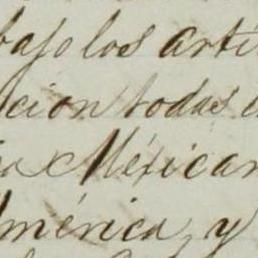 bajo los artí
cion todas
Méxican
América, y